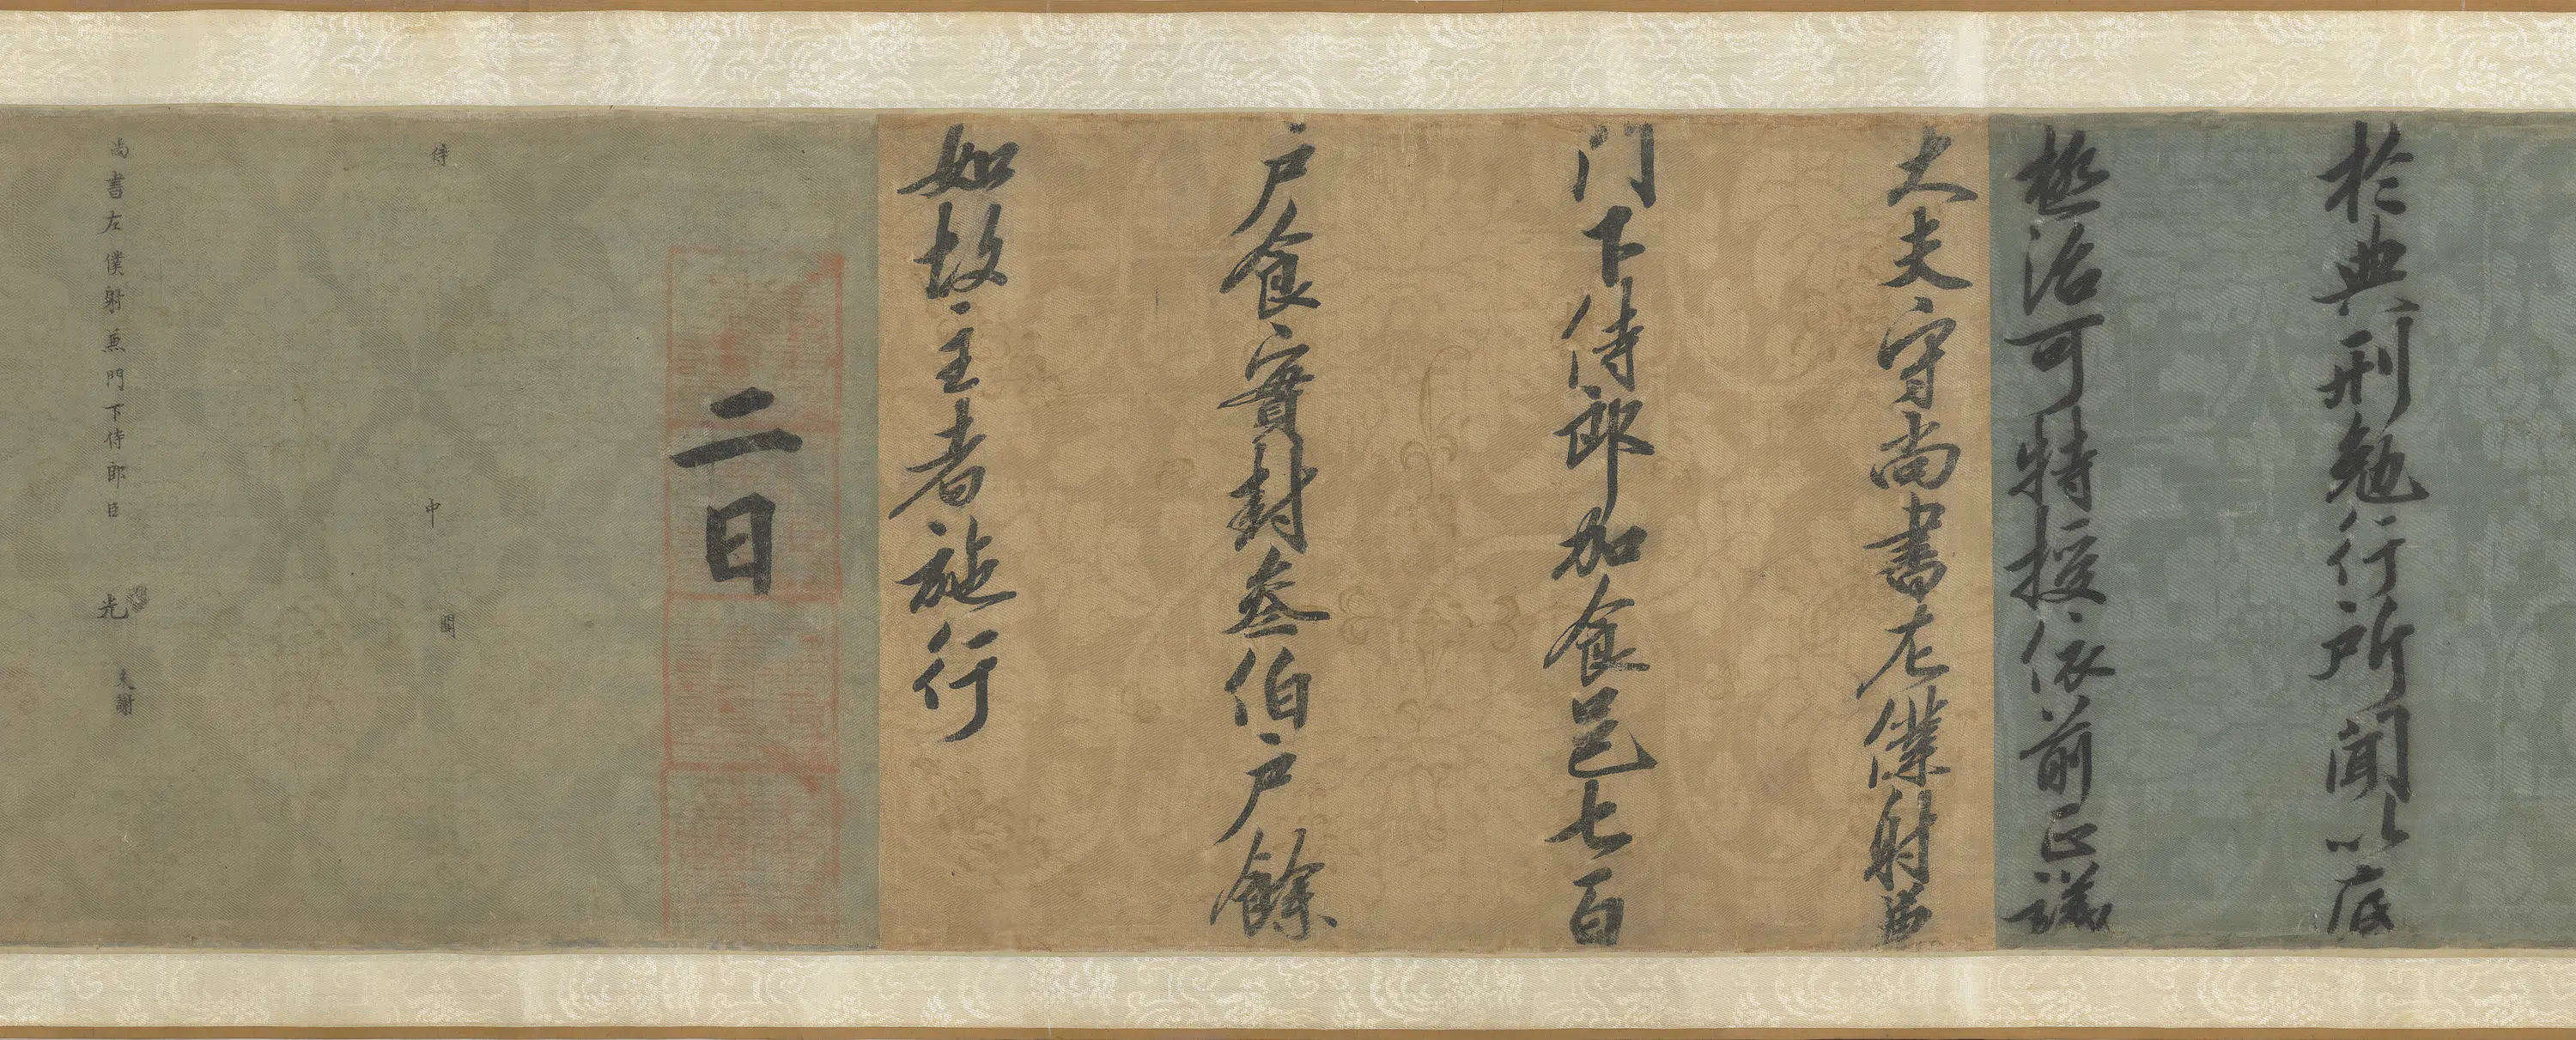 於典刑勉行所聞以底
極治可特授依前正議
大夫守尚書左僕射兼
門下侍郎加食邑七百
戶食實封叁伯戶餘
如故主者施行
二日
侍
中
闕
尚書左僕射兼門下侍郎臣
光
未謝